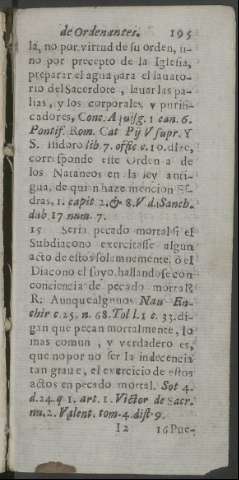 de Ordenantes. 195
la, no por virtud de su orden, u-
no por precepto de la Iglesia,
preparar el agua para el lauato-
rio del Sacerdote, lauar las pa-
lias, y los corporales, y purifi-
cadores, Conc. Aquisg. 1 can. 6.
Pontif. Rom. Cat Pij V supr. Y
S. Isidoro lib 7. offic c. 10. dize,
corresponde este Orden a de
los Nataneos en la ley anti-
gua, de quien haze mencion Es-
dras, 1. capit 2. & 8. V d. Sanch.
dub 17 num. 7.
15 Seria pecado mortal si el
Subdiacono exercitasse algun
acto de estos solemnemente, ò el
Diacono el suyo, hallandose con
conciencia de pecado mortal?
R. Aunque algunos Nau En-
chir c. 25. n. 68. Tol l. 1 c. 33. di-
gan que pecan mortalmente, lo
mas comun, y verdadero es,
que no por no ser la indecencia
tan graue, el exercicio de estos
actos en pecado mortal. Sot 4.
d. 24. q 1. art. 1. Victor de Sacr.
nu. 2. Valent. tom. 4. dist. 9.
I2 16 Pue-